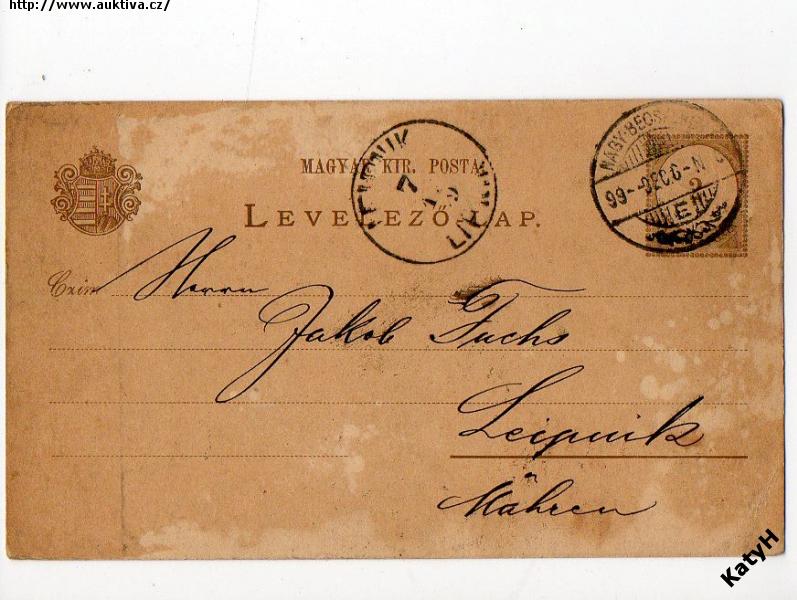 http://www.auktiva.cz/
MAGYAR KIR. POSTA
LEVELEZŐ LAP.
7
99 DEC 6 N
2
Czim
Herrn
Jakob Fuchs
Leipnik
Mähren
KatyH